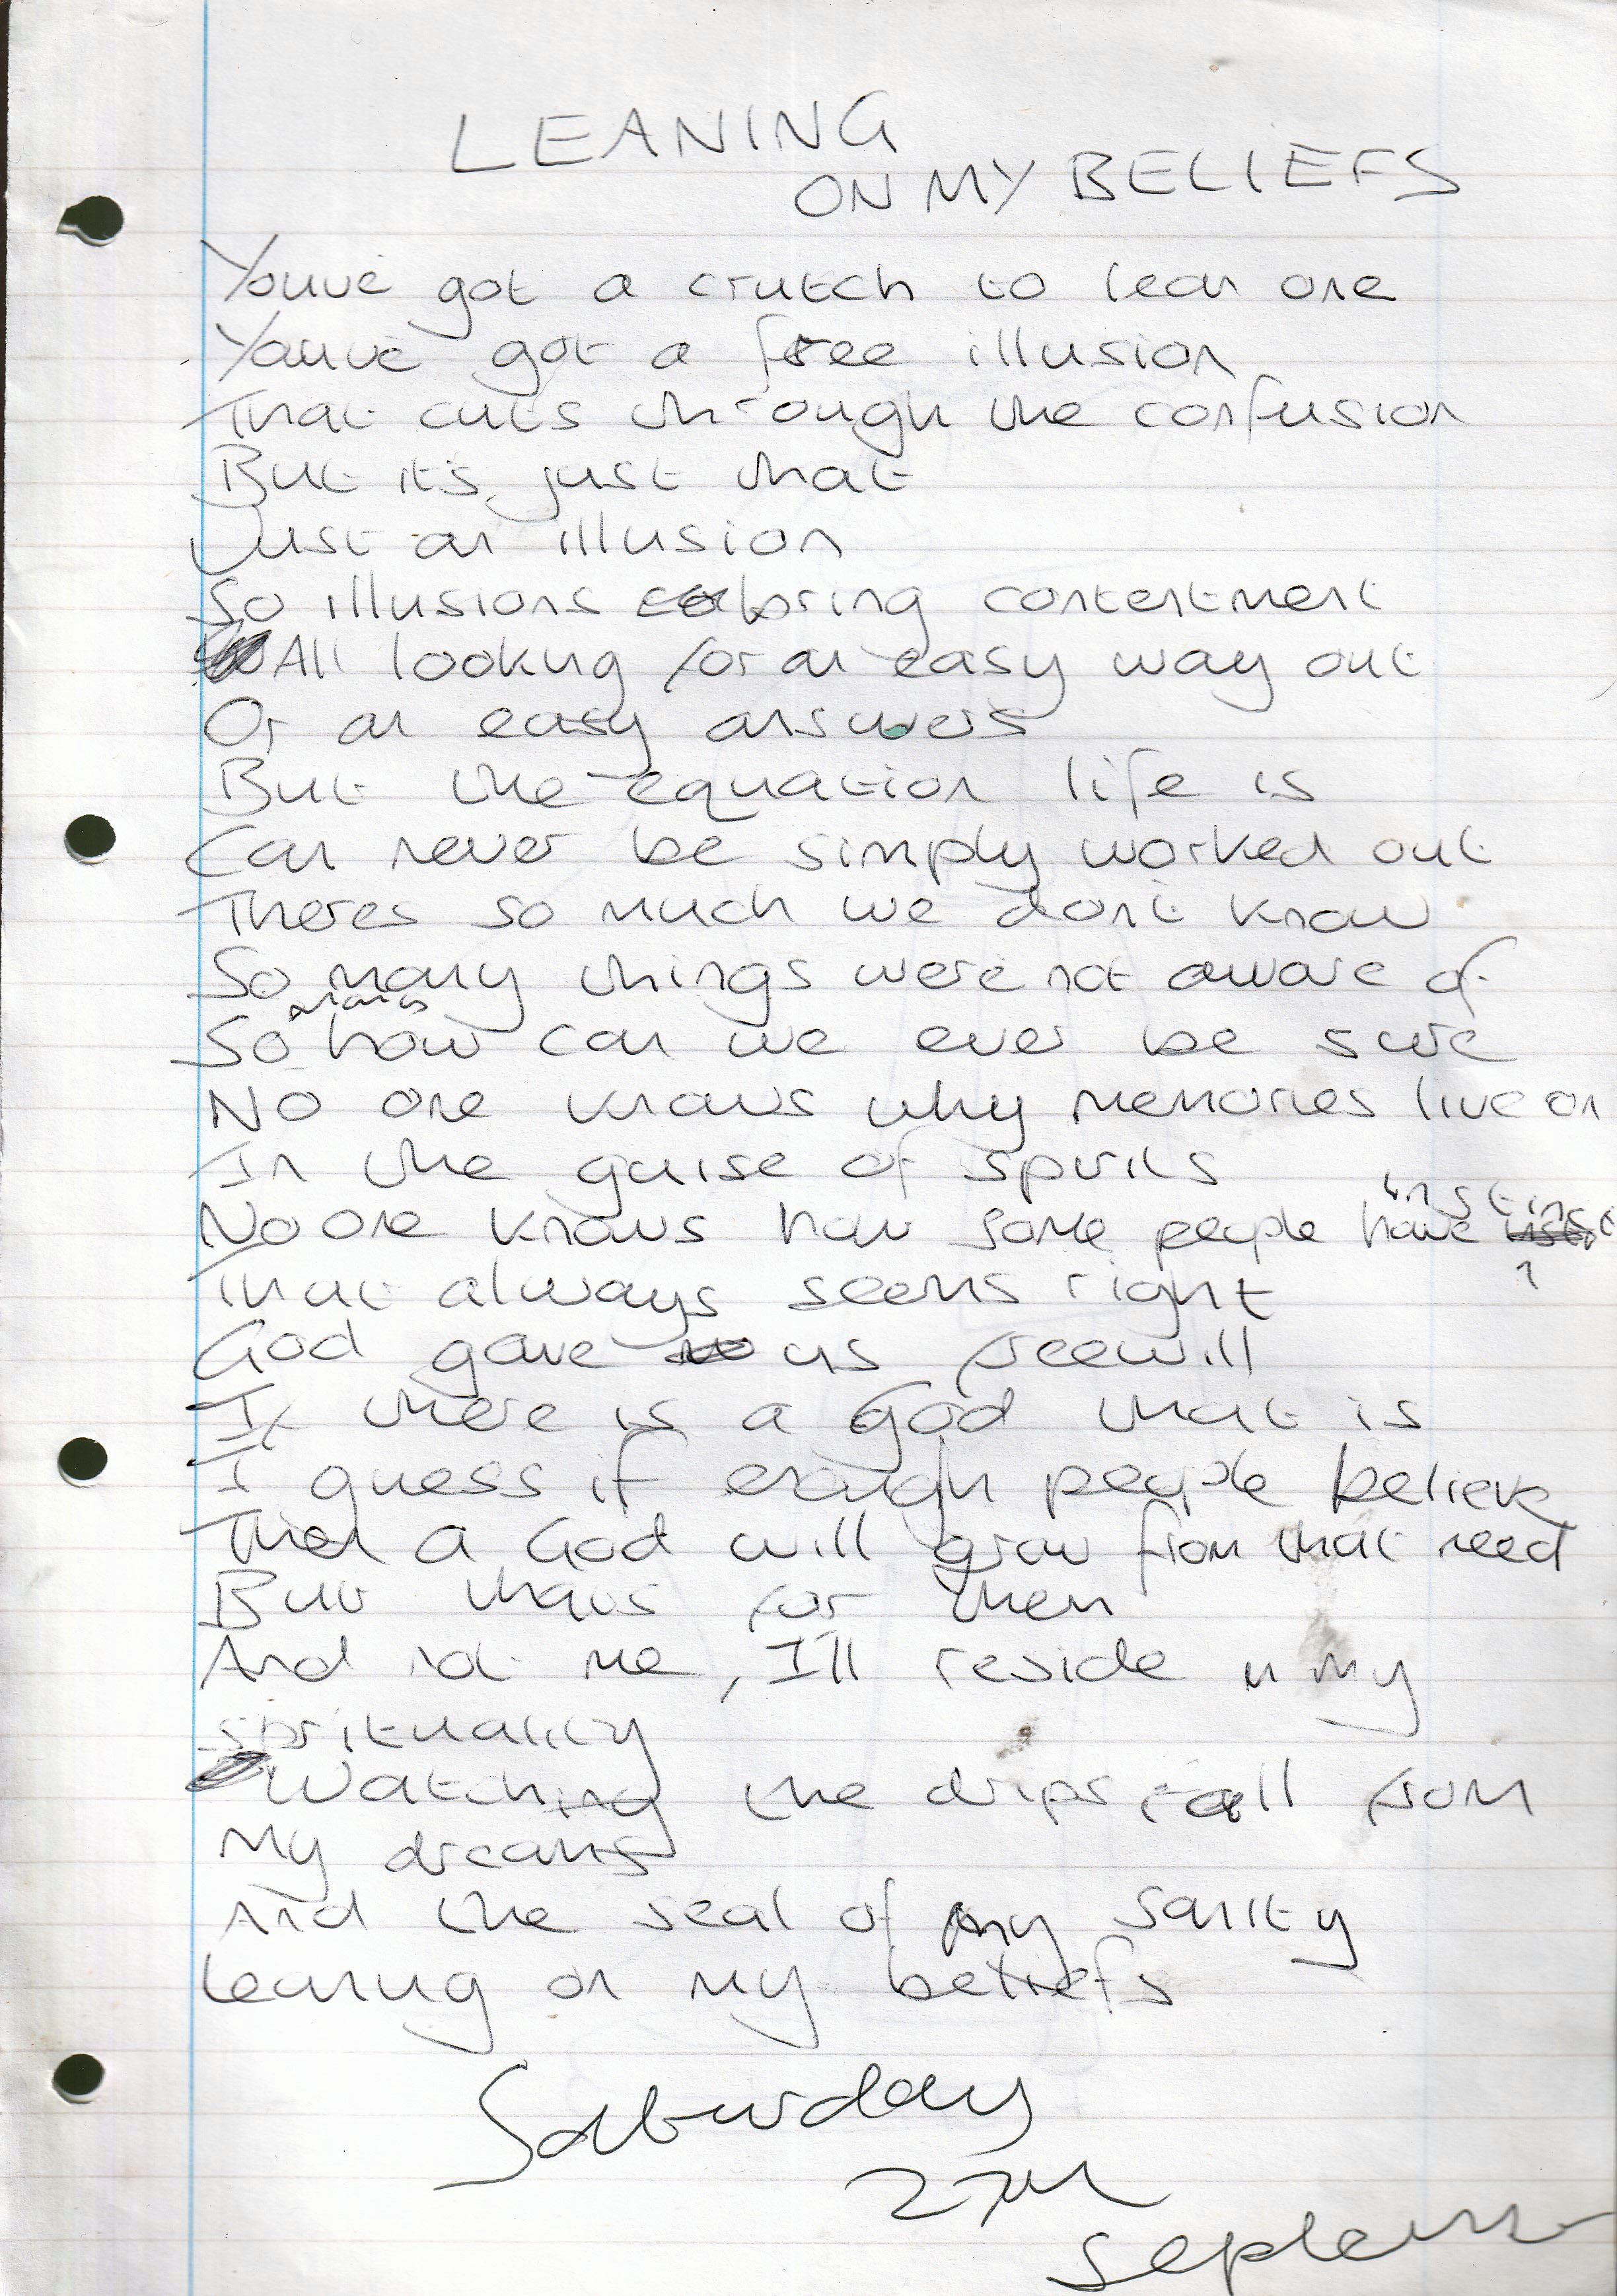 LEANING
ON MY BELIEFS
Youve got a crutch to lean one
Youve got a free illusion
That cuts through the confusion
But it's just that
Just an illusion
So illusions bring contentment
All looking for an easy way out
Or an easy answers
But the equation life is
Can never be simply worked out
Theres so much we don't know
So many things were not aware of
So how can we ever be sure
No one knows why memories live on
In the guise of spirits
No one knows how some people have instinct
That always seems right
God gave us freewill
If there is a God that is
I guess if enough people believe
Then a God will grow from that need
But thats for them
And not me, I'll reside in my
sprituality
Watching the drips fall from
My dreams
And the seal of my sanity
leaning on my beliefs
Saturday
27th
September